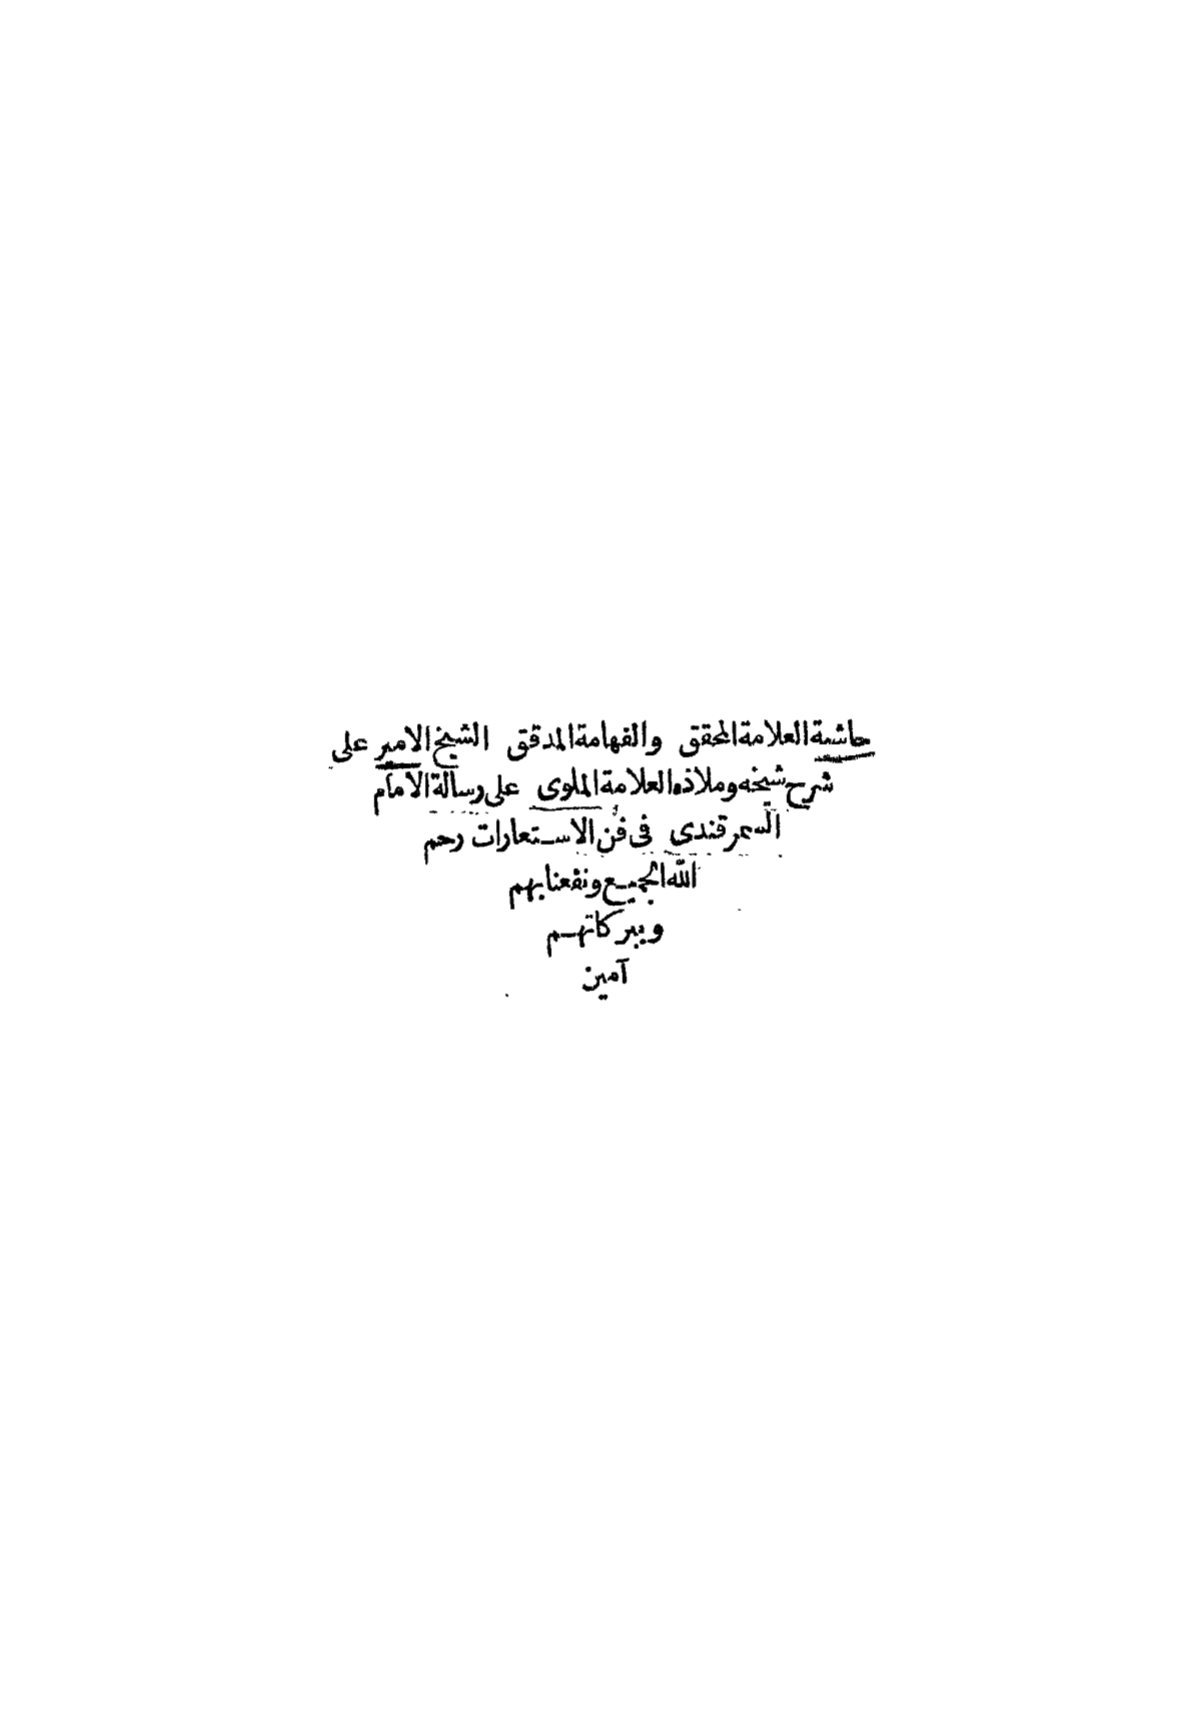 حاشية العلامة المحقق والفهامة المدقق الشيخ الامير على
شرح شيخه وملاذه العلامة الملوى على رسالة الامام
السمرقندى فى فن الاستعارات رحم
الله الجميع ونفعنا بهم
وببركاتهم
آمين